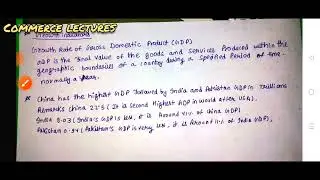 Commerce lectures
Growth Indicators
Growth Rate of Gross Domestic Product (GDP)
GDP is the Total Value of the goods and Services Produced within the
geographic boundaries of a country during a specified Period of time
normally a year.
* China has the highest GDP followed by India and Pakistan GDP in Trillions
Remarks China 22.5 (It is Second Highest GDP in world after USA).
India 9.03 (India's GDP is low, it is Around 41% of China GDP)
Pakistan 0.94 (Pakistan's GDP is very low, it is Around 11% of India GDP),